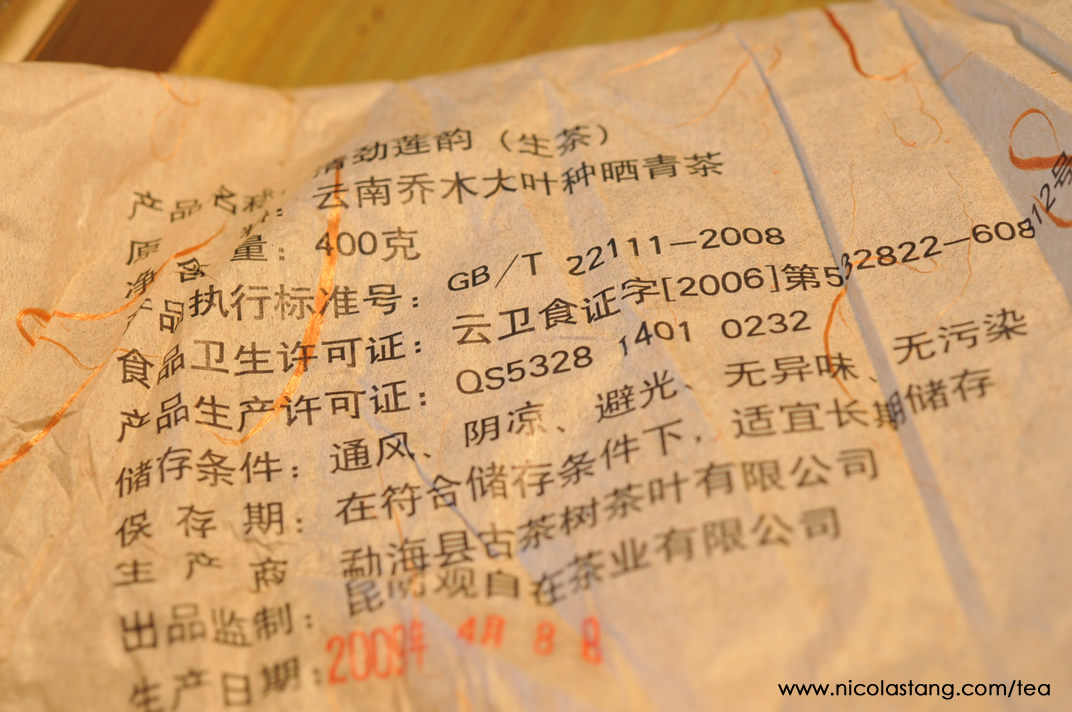 产品名称：清劲莲韵（生茶）
原料：云南乔木大叶种晒青茶
净含量：400克
产品执行标准号：GB/T 22111-2008
食品卫生许可证：云卫食证字[2006]第532822-608912号
产品生产许可证：QS5328 1401 0232
储存条件：通风、阴凉、避光、无异味、无污染
保存期：在符合储存条件下，适宜长期储存
生产商 勐海县古茶树茶叶有限公司
出品监制：昆明观自在茶业有限公司
生产日期：2009年 4月 8日
www.nicolastang.com/tea